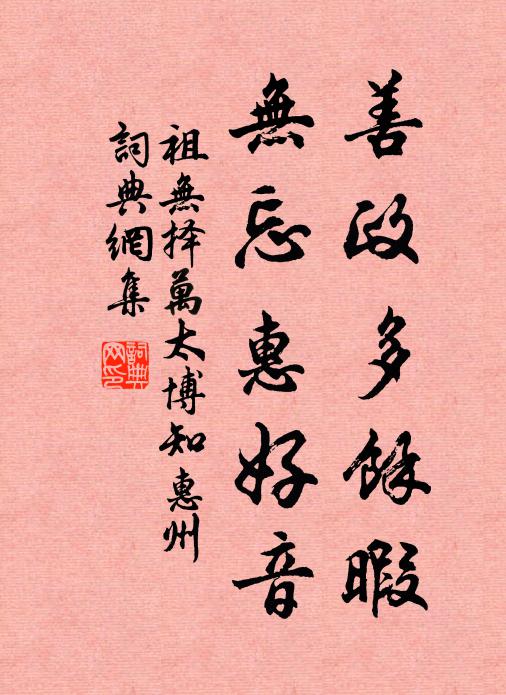 善政多餘暇
無忘惠好音
祖無择萬太博知惠州
詞典網集
詞典
网印